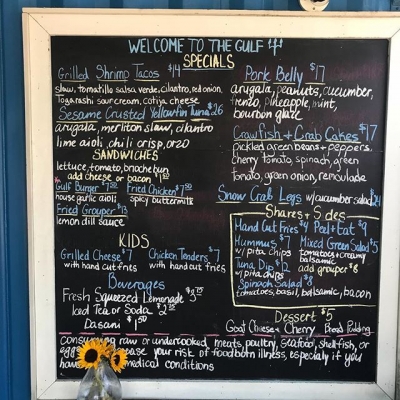 WELCOME TO THE GULF
SPECIALS
Grilled Shrimp Tacos $14
slaw, tomatillo salsa verde, cilantro, red onion,
Togarashi sour cream, cotija cheese
Sesame Crusted Yellowfin Tuna $26
arugula, merliton slaw, cilantro
lime aioli, chili crisp, orzo
SANDWICHES
lettuce, tomato, brioche bun
add cheese or bacon $1.50
Gulf Burger $7.50 Fried Chicken $7.50
house garlic aioli spicy buttermilk
Fried Grouper $13
lemon dill sauce
KIDS
Grilled Cheese $7 Chicken Tenders $7
with hand cut fries with hand cut fries
Beverages
Fresh Squeezed Lemonade $3.75
Iced Tea or Soda $2.75
Dasani $1.50
Pork Belly $17
arugula, peanuts, cucumber,
fresno, pineapple, mint,
bourbon glaze
Crawfish + Crab Cakes $17
pickled green beans + peppers,
cherry tomato, spinach, green
tomato, green onion, remoulade
Snow Crab Legs w/ cucumber salad $24
Shares + Sides
Hand Cut Fries $4 Peel + Eat $9
Hummus $7 Mixed Green Salad $5
w/ pita chips tomatoes + creamy
balsamic
Tuna Dip $12 add grouper $8
w/ pita chips
Spinach Salad $8
tomatoes, basil, balsamic, bacon
Dessert $5
Goat Cheese + Cherry Bread Pudding
consuming raw or undercooked meats, poultry, seafood, shellfish, or
eggs your risk of foodborn illness, especially if you
have medical conditions